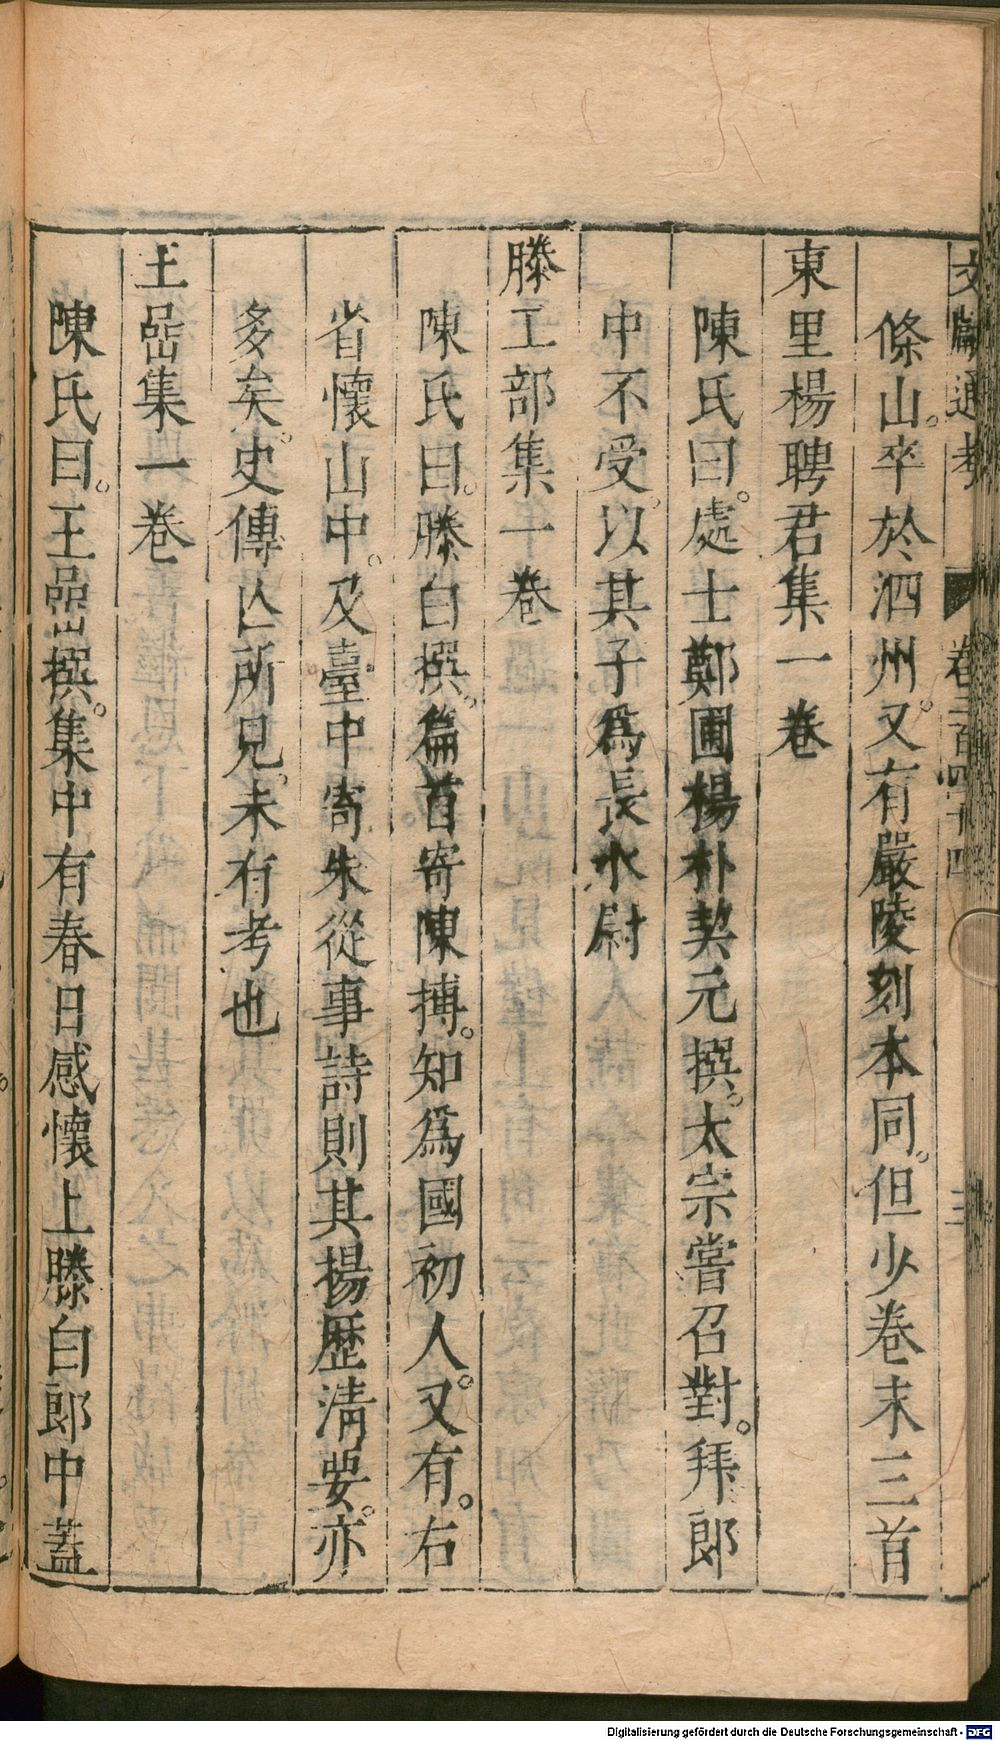 文獻通考 卷二百四十四 三
條山。卒於泗州。又有嚴陵刻本同。但少卷末三首
東里楊聘君集一卷
陳氏曰。處士鄭圃楊朴契元撰。太宗嘗召對。拜郎
中不受。以其子爲長水尉
滕工部集一卷
陳氏曰。滕白撰。篇首寄陳摶。知爲國初人。又有。右
省懷山中。及臺中寄朱從事詩則其揚歷清要。亦
多矣。史傳亾所見。未有考也
王嵒集一卷
陳氏曰。王嵒撰。集中有春日感懷上滕白郎中蓋
Digitalisierung gefördert durch die Deutsche Forschungsgemeinschaft - DFG